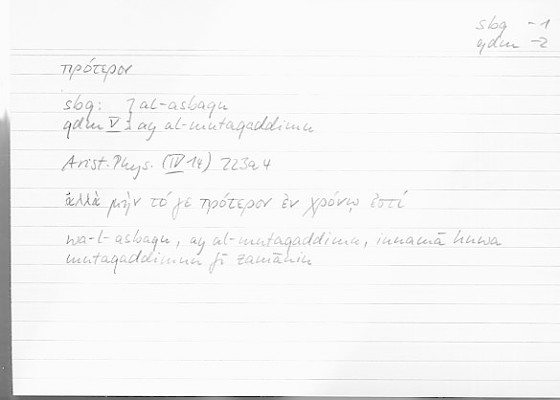 sbq -1
qdm -2
πρότερον
sbq: } al-asbaqu
qdm V } ay al-mutaqaddimu
Arist. Phys. (IV 14) 223a4
ἀλλὰ μὴν τό γε πρότερον ἐν χρόνῳ ἐστί
wa-l-asbaqu, ay al-mutaqaddimu, innamā huwa
mutaqaddimun fī zamānin